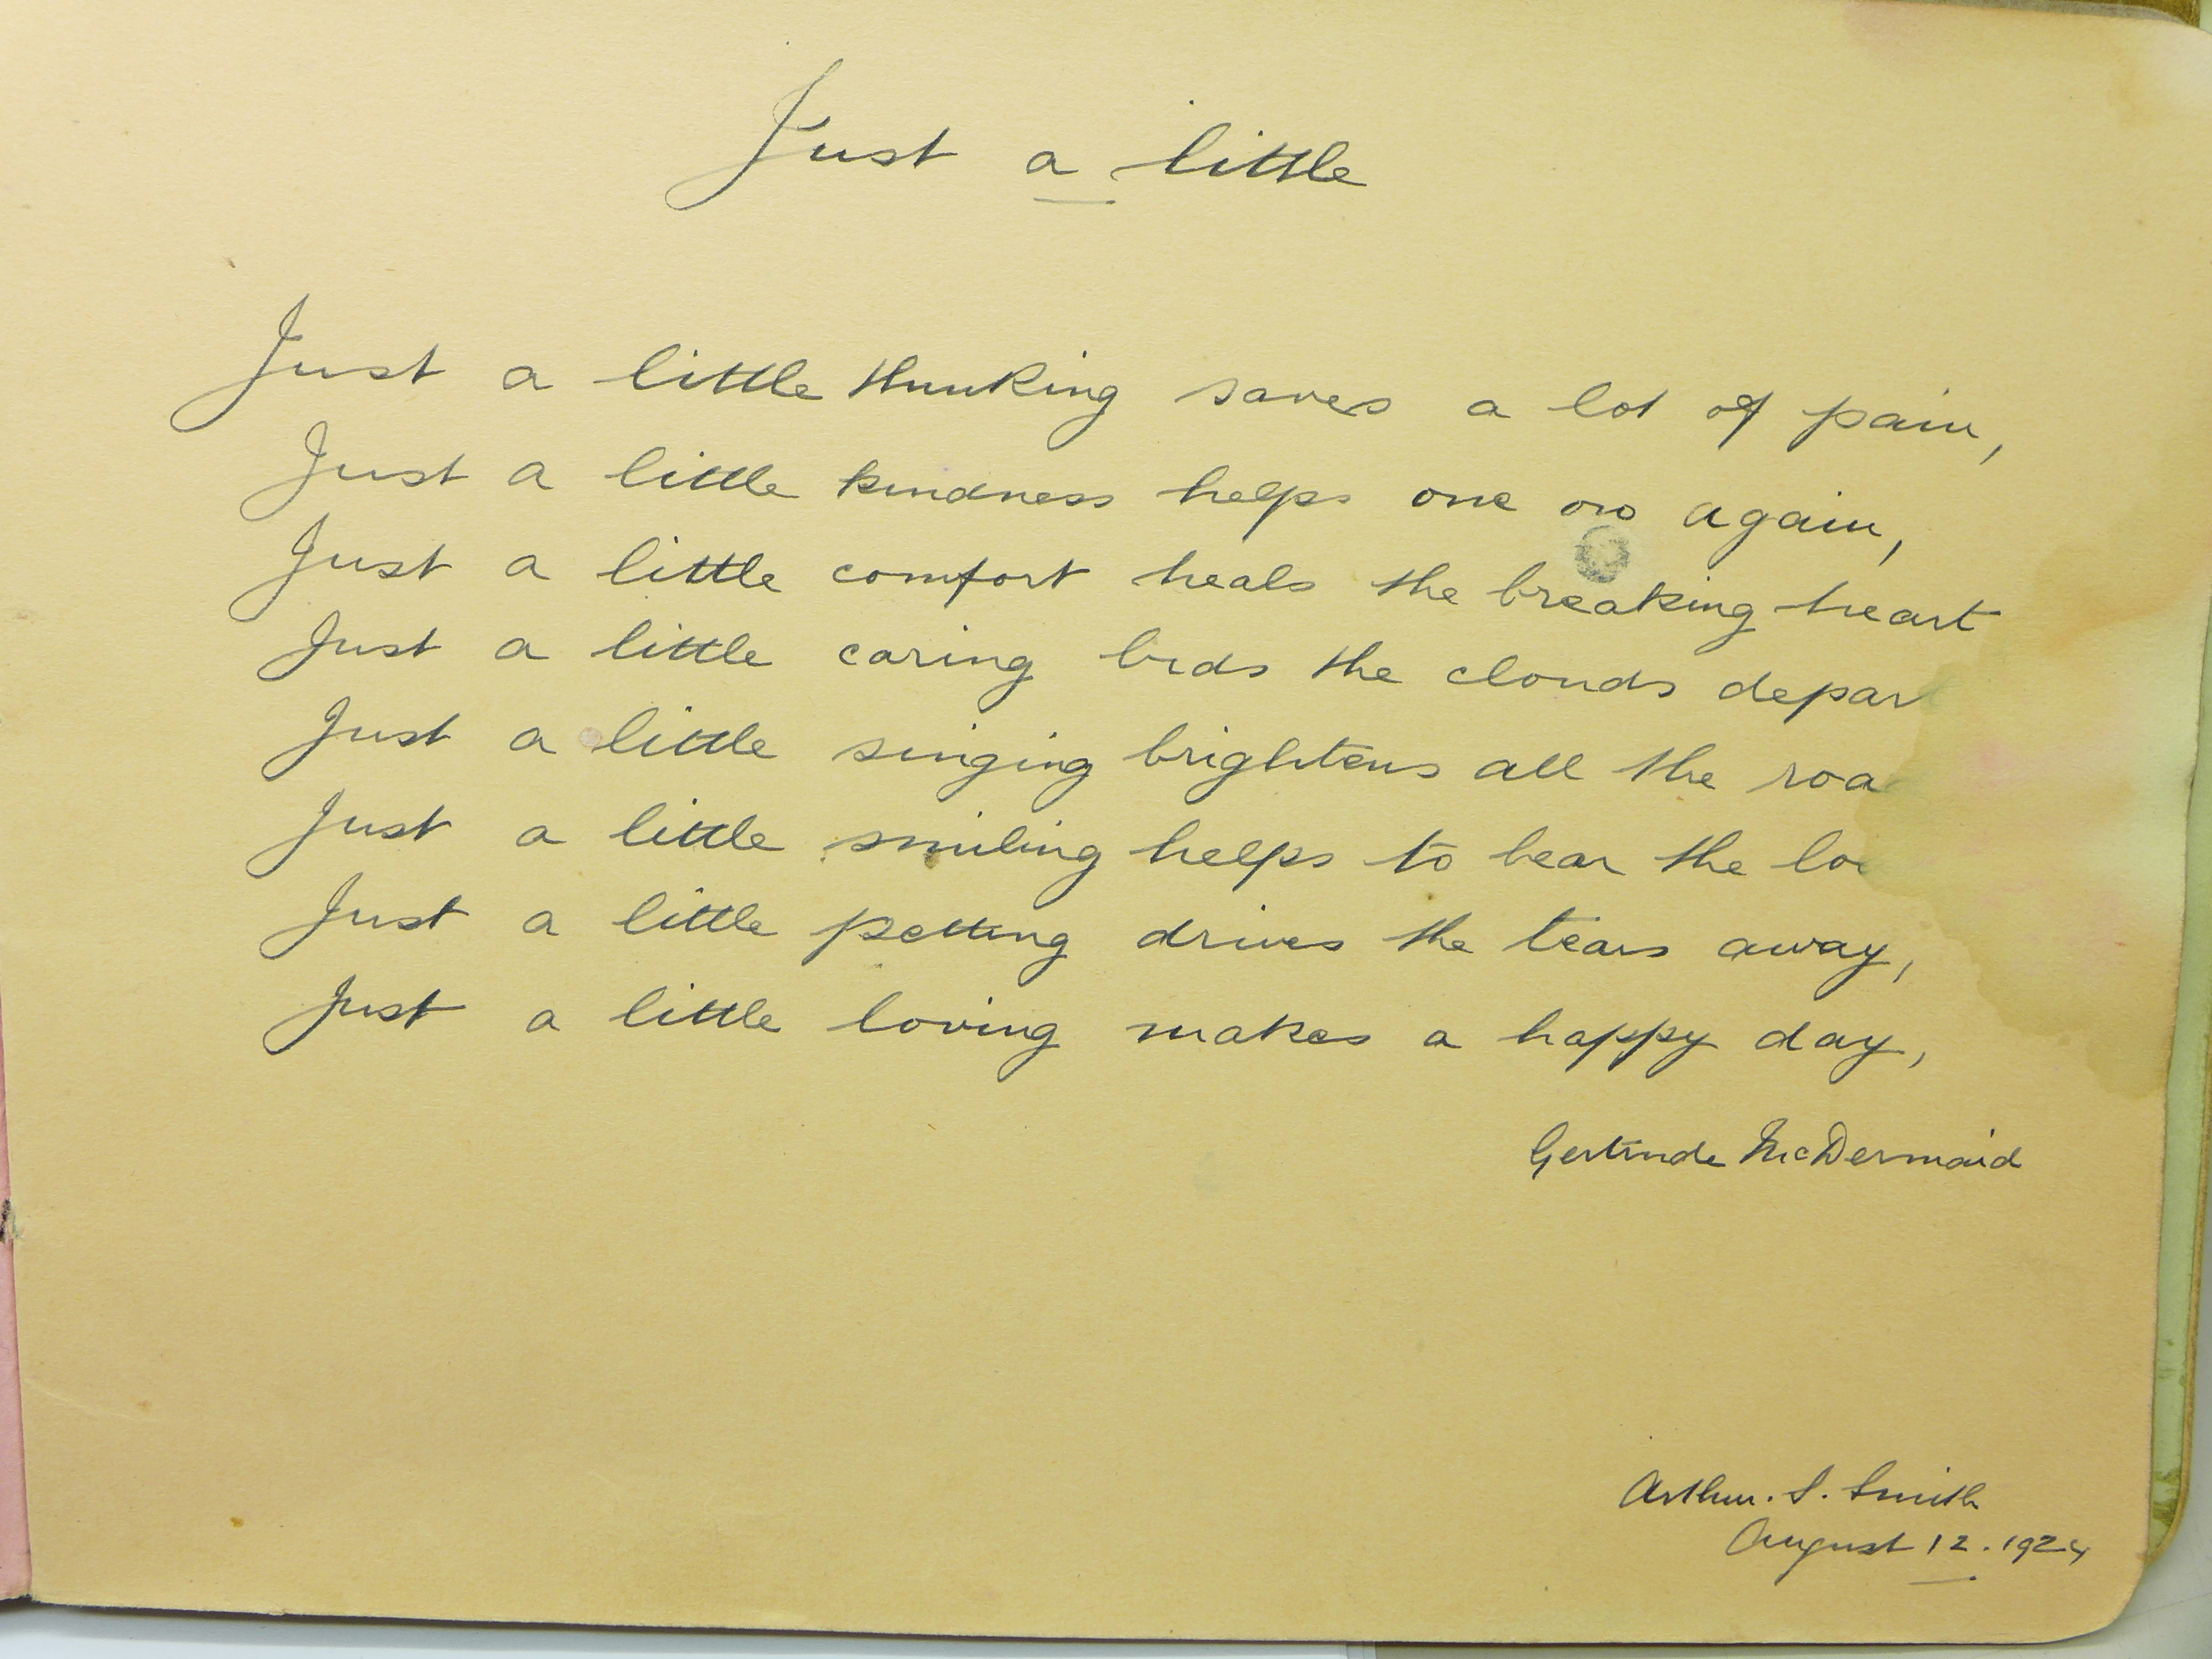 Just a little
Just a little thinking saves a lot of pain,
Just a little kindness helps one on again,
Just a little comfort heals the breaking heart
Just a little caring bids the clouds depar
Just a little singing brightens all the roa
Just a little smiling helps to bear the lo
Just a little petting drives the tears away,
Just a little loving makes a happy day,
Gertrude McDermaid
Arthur. S. Smith
August 12. 1924